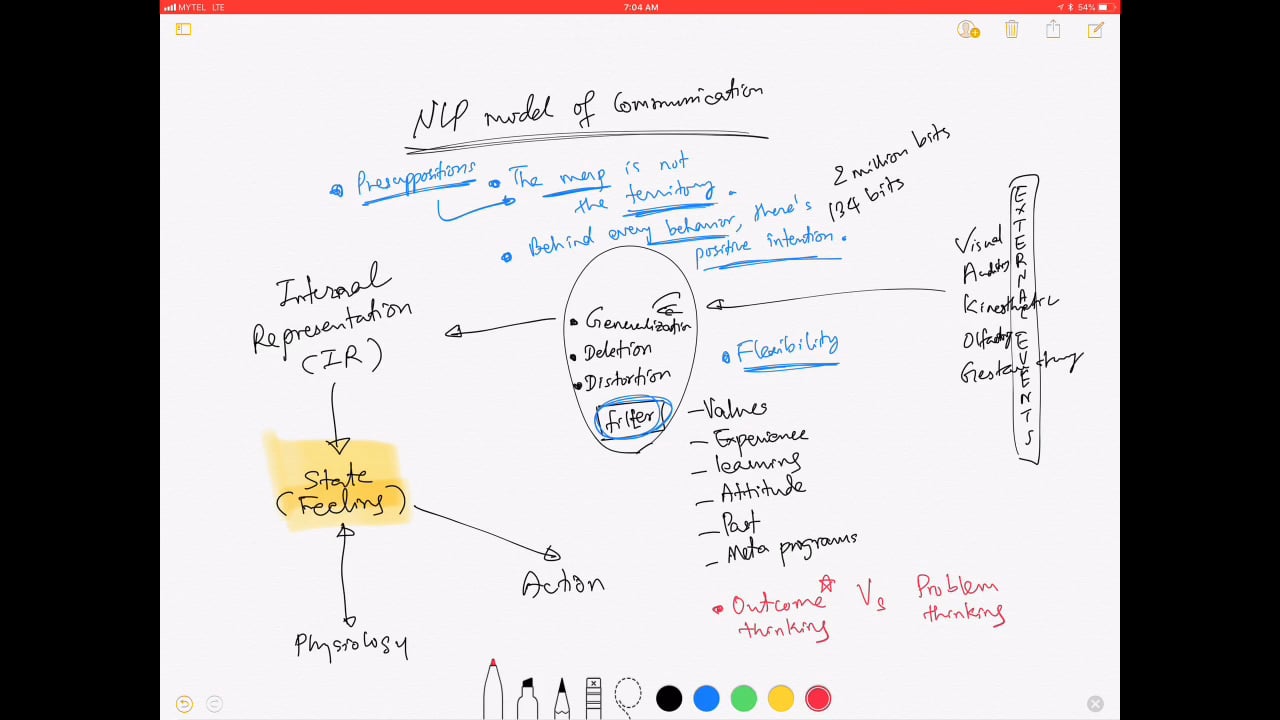 MYTEL LTE
7:04 AM
54%
NLP model of Communication
• Presuppositions
• The map is not
the territory.
• Behind every behavior, there's
positive intention.
2 million bits
134 bits
EXTERNAL EVENTS
Visual
Auditory
Kinesthetic
Olfactory
Internal
Representation
(IR)
• Generalization
• Deletion
• Distortion
filter
• Flexibility
– Values
– Experience
– learning
– Attitude
– Past
– Meta programs
State
(Feeling)
Action
Physiology
• Outcome
thinking
Vs
Problem
thinking